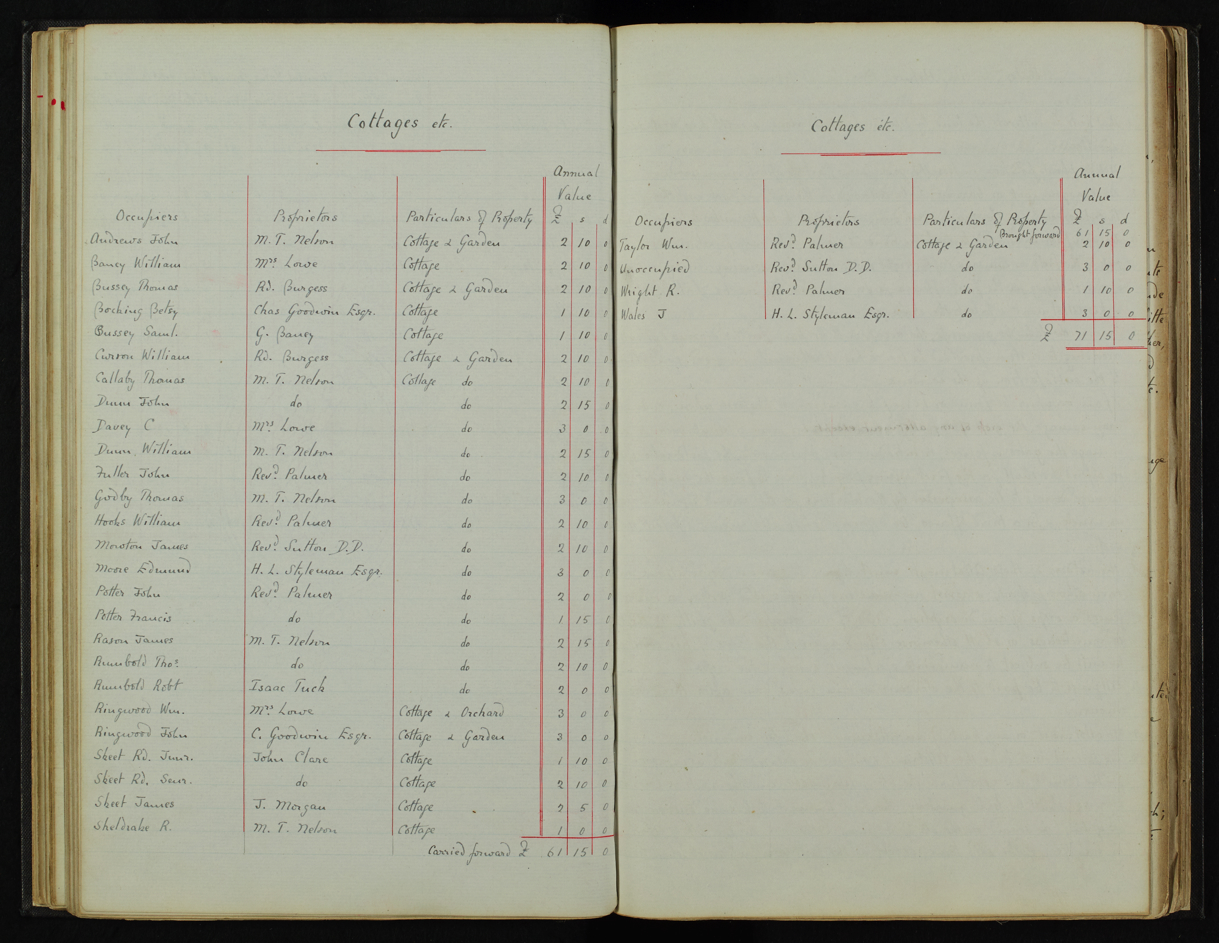 Cottages etc.
Annual
Value
Occupiers Proprietors Particulars of Property £ s d
Andrews John M. T. Nelson Cottage & Garden 2 10 0
Baney William Mrs Lowe Cottage 2 10 0
Bussey Thomas Rd. Burgess Cottage & Garden 2 10 0
Bocking Betsy Chas Goodwin Esqr. Cottage 1 10 0
Bussey Saml. G. Baney Cottage 1 10 0
Curson William Rd. Burgess Cottage & Garden 2 10 0
Callaby Thomas M. T. Nelson Cottage do 2 10 0
Dunn John do do 2 15 0
Davey C Mrs Lowe do 3 0 0
Dunn William M. T. Nelson do 2 15 0
Fuller John Revd. Palmer do 2 10 0
Godby Thomas M. T. Nelson do 3 0 0
Hooks William Revd. Palmer do 2 10 0
Mowton James Revd. Sutton D.D. do 2 10 0
Moore Edmund H. L. Styleman Esqr. do 3 0 0
Potter John Revd. Palmer do 2 0 0
Potter Francis do do 1 15 0
Rason James M. T. Nelson do 2 15 0
Rumbold Thos. do do 2 10 0
Rumbold Robt Isaac Tuck do 2 0 0
Ringwood Wm. Mrs. Lowe Cottage & Orchard 3 0 0
Ringwood John C. Goodwin Esqr. Cottage & Garden 3 0 0
Skeet Rd. Junr. John Clare Cottage 1 10 0
Skeet Rd. Senr. do Cottage 2 10 0
Skeet James J. Morgan Cottage 2 5 0
Sheldrake R. M. T. Nelson Cottage 1 0 0
Carried forward £ 61 15 0
Cottages etc.
Annual
Value
Occupiers Proprietors Particulars of Property £ s d
Brought forward 61 15 0
Taylor Wm. Revd. Palmer Cottage & Garden 2 10 0
Unoccupied Revd. Sutton D.D. do 3 0 0
Wright R. Revd. Palmer do 1 10 0
Wales J H. L. Styleman Esqr. do 3 0 0
£ 71 15 0